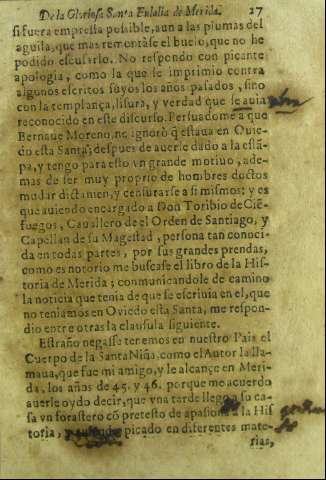 De la Gloriosa Santa Eulalia de Merida. 27
si fuera empressa possible, aun a las plumas del
aguila, que mas remontasse el buelo, que no he
podido escusarlo. No respondo con picante
apologia, como la que se imprimio contra
algunos escritos suyos los años passados, sino
con la templança, lisura, y verdad que se auia
reconocido en este discurso. Persuadome a que
Bernaue Moreno, no ignorò q̃ estaua en Ouie-
do esta Santa, despues de auerle dado a la estã-
pa, y tengo para esto vn grande motiuo, ade-
mas de ser muy proprio de hombres doctos
mudar dictamen, y censurarse a si mismos: y es
que auiendo encargado a Don Toribio de Ciẽ-
fuegos, Cauallero del Orden de Santiago, y
Capellan de su Magestad, persona tan conoci-
da en todas partes, por sus grandes prendas,
como es notorio me buscasse el libro de la His-
toria de Merida; comunicandole de camino
la noticia que tenia de que se escriuia en el, que
no teniamos en Ouiedo esta Santa, me respon-
dio entre otras la clausula siguiente.
Estraño negasse teremos en nuestro Pais el
Cuerpo de la Santa Niña, como el Autor la lla-
maua, que fue mi amigo, y le alcançe en Meri-
da, los años de 45. y 46. porque me acuerdo
auerle oydo decir, que vna tarde llego a su ca-
sa vn forastero cõ pretesto de apasion a la His
toria, y picado en diferentes mate-
rias,